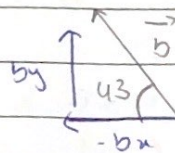 b
by
43
-bx